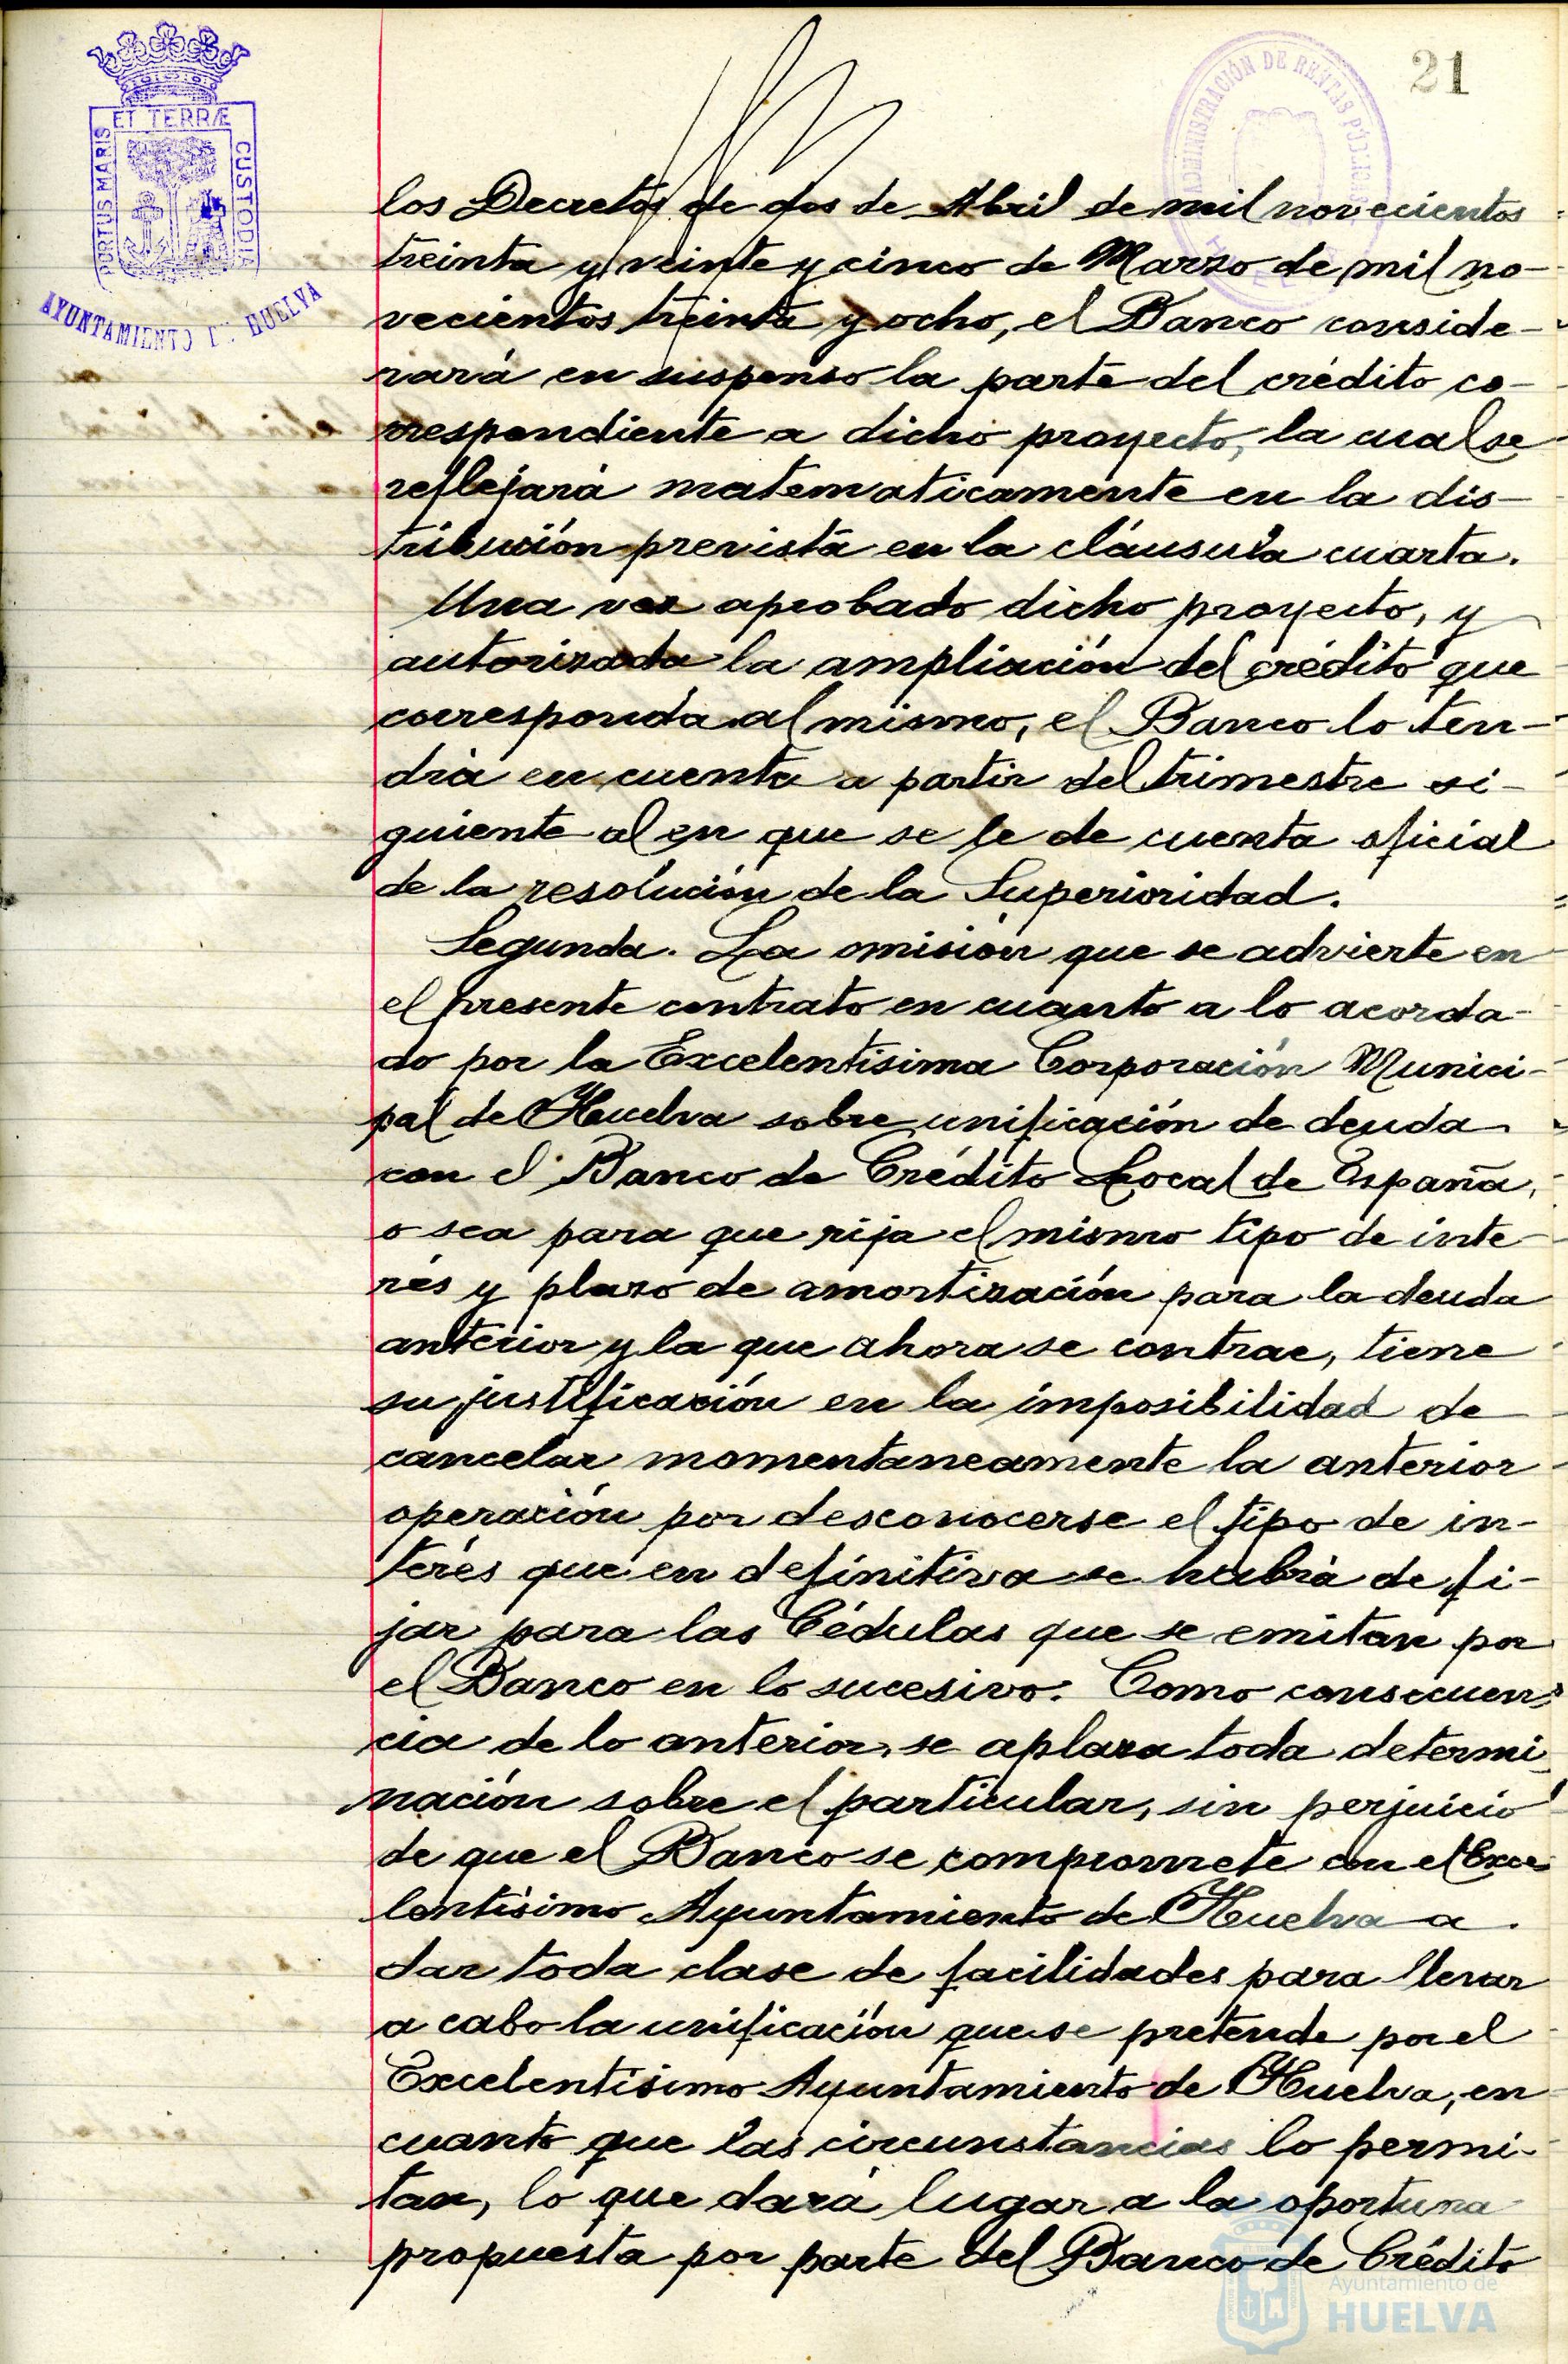 21
ET TERRÆ
PORTUS MARIS
CUSTODIA
AYUNTAMIENTO DE HUELVA
ADMINISTRACIÓN DE RENTAS PÚBLICAS
los Decretos de dos de Abril de mil novecientos
treinta y veinte y cinco de Marzo de mil no-
vecientos treinta y ocho, el Banco conside-
rará en suspenso la parte del crédito co-
rrespondiente a dicho proyecto, la cual se
reflejará matematicamente en la dis-
tribución prevista en la cláusula cuarta.
Una vez aprobado dicho proyecto, y
autorizada la ampliación del crédito que
corresponda al mismo, el Banco lo ten-
drá en cuenta a partir del trimestre si-
guiente al en que se le de cuenta oficial
de la resolución de la Superioridad.
Segunda. La omisión que se advierte en
el presente contrato en cuanto a lo acorda-
do por la Excelentísima Corporación Munici-
pal de Huelva sobre unificación de deuda
con el Banco de Crédito Local de España,
o sea para que rija el mismo tipo de inte-
rés y plazo de amortización para la deuda
anterior y la que ahora se contrae, tiene
su justificación en la imposibilidad de
cancelar momentaneamente la anterior
operación por desconocerse el tipo de in-
terés que en definitiva se habrá de fi-
jar para las Cédulas que se emitan por
el Banco en lo sucesivo. Como consecuen-
cia de lo anterior, se aplaza toda determi-
nación sobre el particular, sin perjuicio
de que el Banco se compromete con el Exce
lentísimo Ayuntamiento de Huelva a
dar toda clase de facilidades para llevar
a cabo la unificación que se pretende por el
Excelentísimo Ayuntamiento de Huelva, en
cuanto que las circunstancias lo permi-
tan, lo que dará lugar a la oportuna
propuesta por parte del Banco de Crédito
Ayuntamiento de
HUELVA